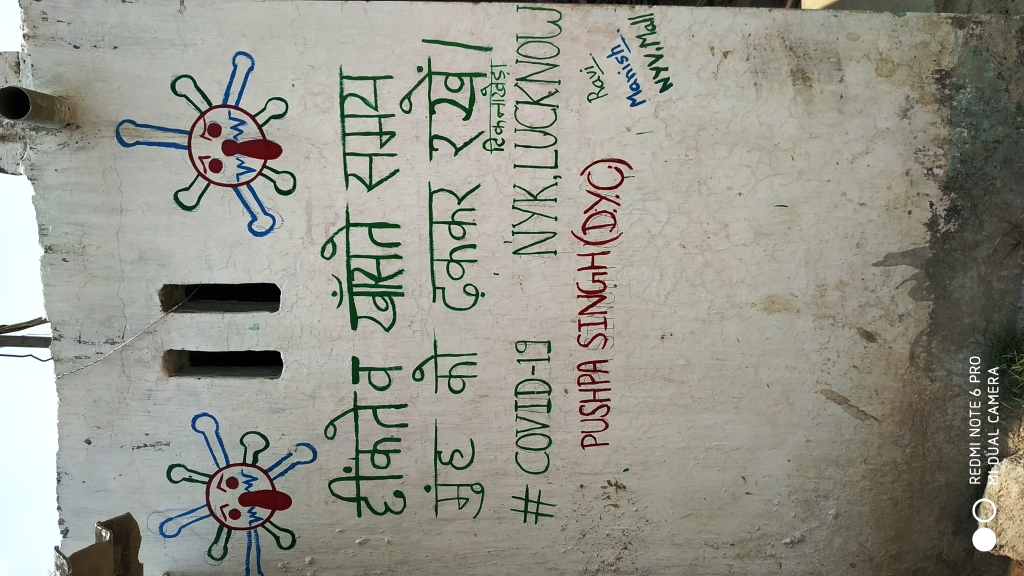 छींकते व खाँसते समय
मुंह को ढ़ककर रखें।
टिकनाखेड़ा
# COVID-19 NYK, LUCKNOW
PUSHPA SINGH (D.Y.C.)
Ravi
Manish
NYV. Mall
REDMI NOTE 6 PRO
MI DUAL CAMERA